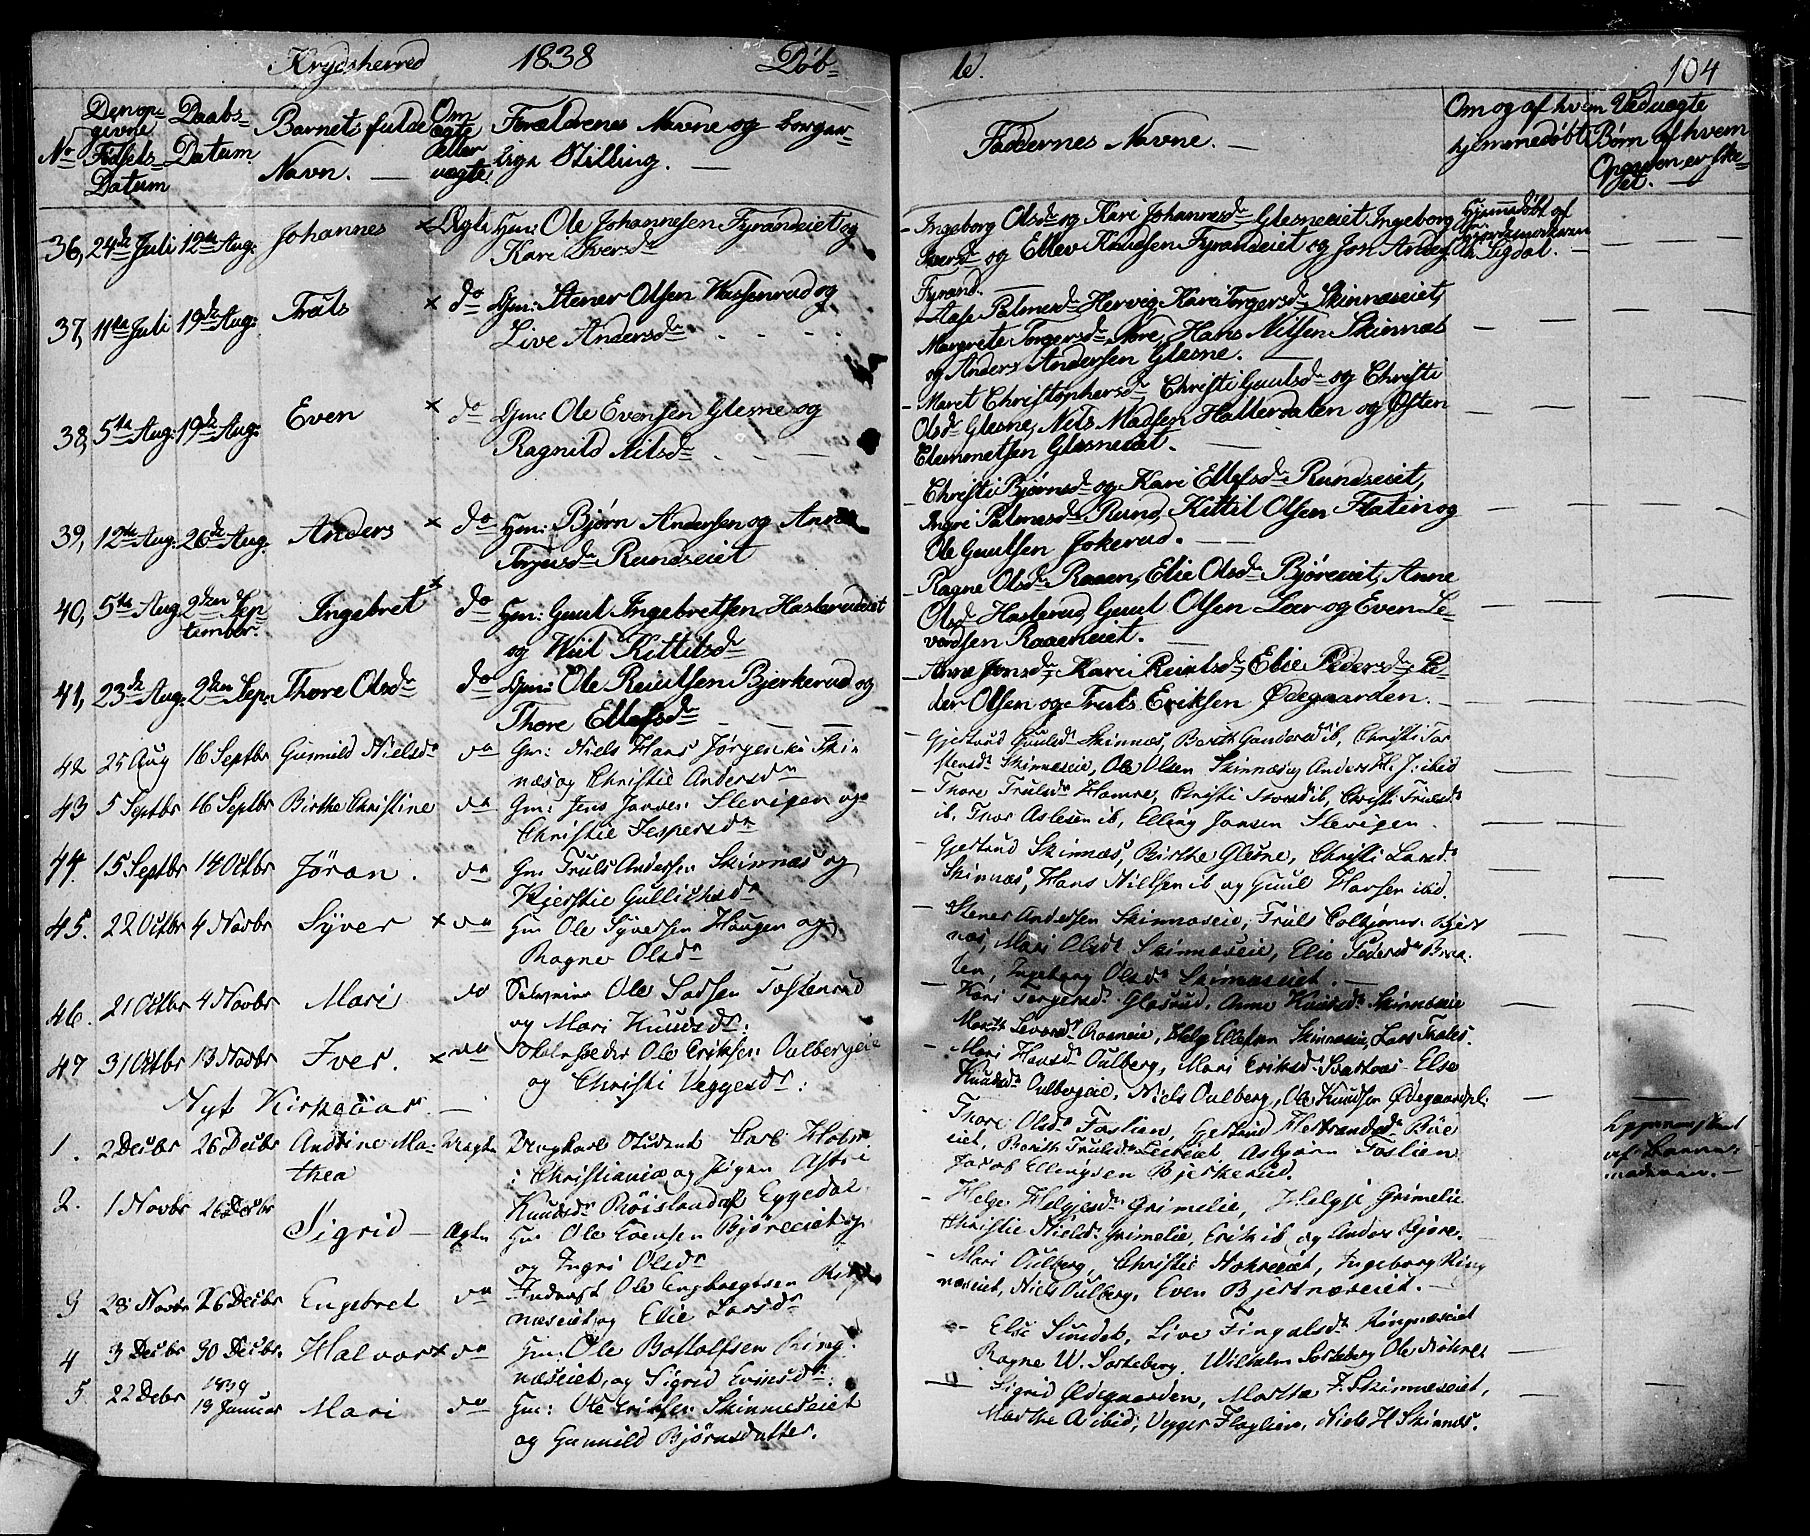 Krydsherred 1838 Døb= te. 104
No
Den op=
givne
Fødsels=
Datum
Daabs=
Datum.
Barnets fulde
Navn.
Om
ægte
eller
uægte.
Forældrenes Navne og borger=
lige Stilling.
Faddernes Navne.
Om og af hvem
hjemmedøbt
Uædvagte
Børn af hvem
Opgaven er ske=
et.
36, 24de Juli 12te Aug: Johannes × Ægte Gm: Ole Johannesen Fyrandeiet og
Kari Iversd.
Ingeborg Olsdr og Kari Johannesdr Glesneeiet, Ingeborg
Iversdr og Ellev Knudsen Fyrandeiet og Jon Anders:
Fyrand.
Hjemmedøbt af
i Sigdal.
37, 11te Juli 19de Aug: Truls × do Gm: Stener Olsen Wassenrud og
Live Andersdr
Aase Palmesdr Hervig, Kari Torgersdr Skinnæseiet,
Margrete Torgersdr Nore, Hans Nilsen Skinnæs
og Anders Andersen Glesne.
38, 5te Aug: 19de Aug: Even × do Gm: Ole Evensen Glesne og
Ragnild Nilsdr
Maret Christophersdr, Christi Guulsdr og Christi
Olsdr Glesne, Nils Madsen Hallerdalen og Østen
Clemmetsen Glesneeiet.
39, 12te Aug: 26de Aug. Anders × do Gm: Bjørn Andersen og Anne
Torjusdr Rundseiet
Christi Bjørnsdr og Kari Ellefsdr Rundseiet,
Ingri Palmesdr Rund, Kittil Olsen Flatin og
Ole Guulsen Jokerud.
40, 5te Aug 2den Sep
tember. Ingebret × do Gm: Guul Ingebretsen Hasleruddeiet
og Wiil Kittilsdr
Ragne Olsdr Raaen, Elie Olsdr Bjøreeiet, Anne
Olsdr Haslerud, Guul Olsen Leer og Even Le=
vordsen Raaeneiet.
41, 23de Aug: 2den Sep: Thore Olsdr do Gm: Ole Reiulsen Bjerkerud og
Thore Ellefsdr
Anne Jonsdr, Kari Reiulsdr, Elie Pedersdr, Pe=
der Olsen og Truls Eriksen Ødegaarden.
42 25 Aug 16 Septbr Gunnild Nielsdr do Gm: Niels Hans Jørgens: Skin
næs og Christie Andersdr
Gjertrud Guulsdr Skinnæs, Berith Gundersd ib, Christi Tor
stensdr Skinnæseie, Ole Olsen Skinnæs og Anders H. J. ibid
43 5 Septbr 16 Septbr Birthe Christine do Gm: Jens Jansen Slevigen og
Christie Jespersdr
Thore Trulsdr Hamre, Christi Torsd ib, Christi Trulsdr
ib, Thor Aslesen ib, Elling Jansen Slevigen.
44. 15 Septbr 14 Octbr Jøran. do Gm Truls Andersen Skinnæs og
Kjerstie Gullichsdr
Gjertrud Skinnæs, Birthe Glesne, Christi Larsdr
Skinnæs, Hans Nilsen ib og Guul Hansen ibid.
45. 22 Octbr 4 Novbr Syver × do Gm Ole Syversen Haugen og
Ragne Olsdr
Stener Andersen Skinnæseie, Truls
næs, Mari Olsdr Skinnæseie, Elie Pedersdr
ten, Ingeborg Olsdr Skinnæseiet.
46. 21 Octbr 4 Novbr Mari do Ole Larsen Tostenrud
og Mari Knudsdr:
Kari Torgersdr Glasrud, Anne Knudsdr Skinnæseie
Marth Levordsdr Raaneie, Helge Ellefsen Skinnæseie, Lars
47 31 Octbr 13 Novbr Iver. × do Ole Eriksen Oulbergeie
og Christi Veggersdr:
Mari Hansdr Oulberg, Mari Eriksdr Svartaas Else
Knudsdr Oulbergeie, Niels Oulberg, Ole Knudsen Ødegaardspl.
Nyt Kirkeaar.
1. 2 Decbr 26 Decbr Andrine Ma
thea Uægte Drengkarl Student Carl Holm
i Christiania og Pigen Astri
Knudsdr Røislandaf Eggedal
Thore Olsdr Foslien, Gjertrud Herbrandsdr Bøe
eiet, Berith Trulsdr Leereiet, Asbjørn Foslien
Jacob Ellingsen Bjerkerud.
af Barne=
moderen.
2. 1 Novbr 26 Decbr Sigrid Ægte Gm Ole Evensen Bjøreeiet og
og Ingri Olsdr
Helge Helgesdr Grimelie, Helge Grimelie
Christie Nielsdr Grimelie, Erik ib og Anders Bjøre.
3 28 Novbr 26 Decbr Engebret do Inderst Ole Engebregtsen Ring
næseiet og Elie Larsdr
Mari Oulberg, Christie Nokreiet, Ingeborg Ring
næseiet, Niels Oulberg, Even Bjertnæseiet.
4 3 Decbr 30 Decbr. Halvor × do Gm: Ole Bottolfsen Ring
næseiet, og Sigrid Evensdr:
Elsi Sundet, Live Fingalsdr Ringnæseiet
Ragne W. Sorteberg, Wilhelm Sorteberg Ole
5. 22 Decbr 1839
19 Januar Mari do Gm: Ole Eriksen Skinneseiet
og Gunnild Bjørnsdatter.
Sigrid Ødegaarden, Martha F. Skinneseiet,
Marthe A ibid, Vegger Flaglien, Niels H Skinnæs.